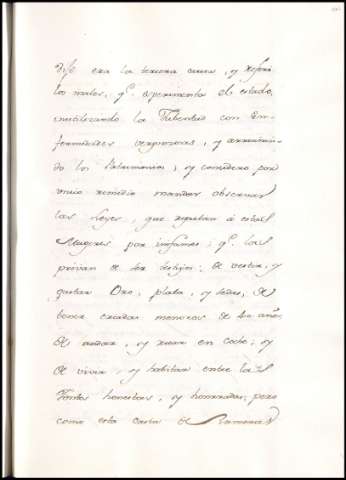 dije era la tercera causa, y refiri
los males, q.e experimenta el estado,
inutilizando la Jubentud con En-
fermedades vergonzosas, y arruinan-
do los Patrimonios; y considero por
unico remedio mandar observar
las Leyes, que reputan á estas
Mugeres por infames; q.e las
privan de los hijos; de vestir, y
gastar Oro, plata, y sedas, de
tener criadas menores de 40 años
de andar, y ruar en Coche; y
de vivir, y habitar entre las
Gentes honestas, y honrradas; pero
como esta casta de Rameras